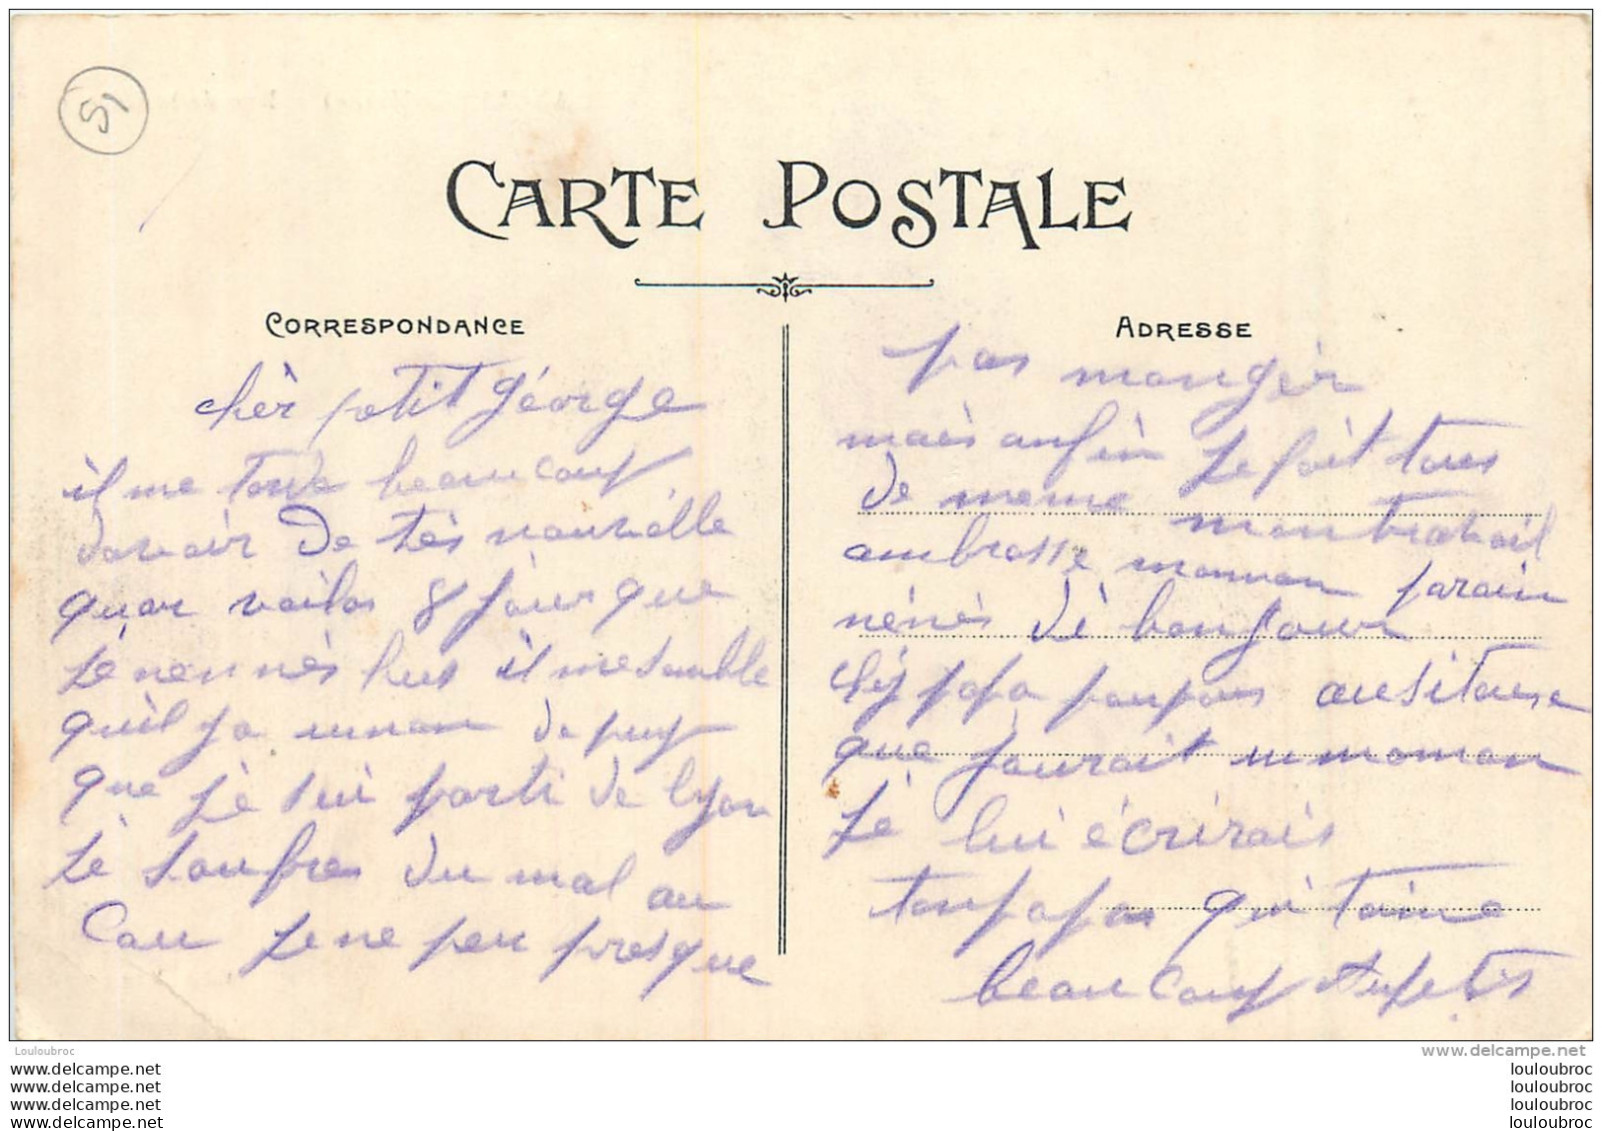 51
CARTE POSTALE
CORRESPONDANCE
chèr petit géorge
il me tarde beaucoup
davoir de tès nouvélle
quar voila 8 jour que
je nen nès hus il me semble
quil ja unnan depuy
que jè sui parti de lyon
jè soufres du mal au
Cou je ne peu presque
ADRESSE
pas mangér
mais anfin je fait tous
de meme montravail
ambrasse maman parain
nénès dè bonjour
papa ausitause
que jaurait unmoman
jè lui écrirais
tonpapa qui taime
beaucoup
Louloubroc
www.delcampe.net
www.delcampe.net
www.delcampe.net
www.delcampe.net
www.delcampe.net
louloubroc
louloubroc
louloubroc
louloubroc